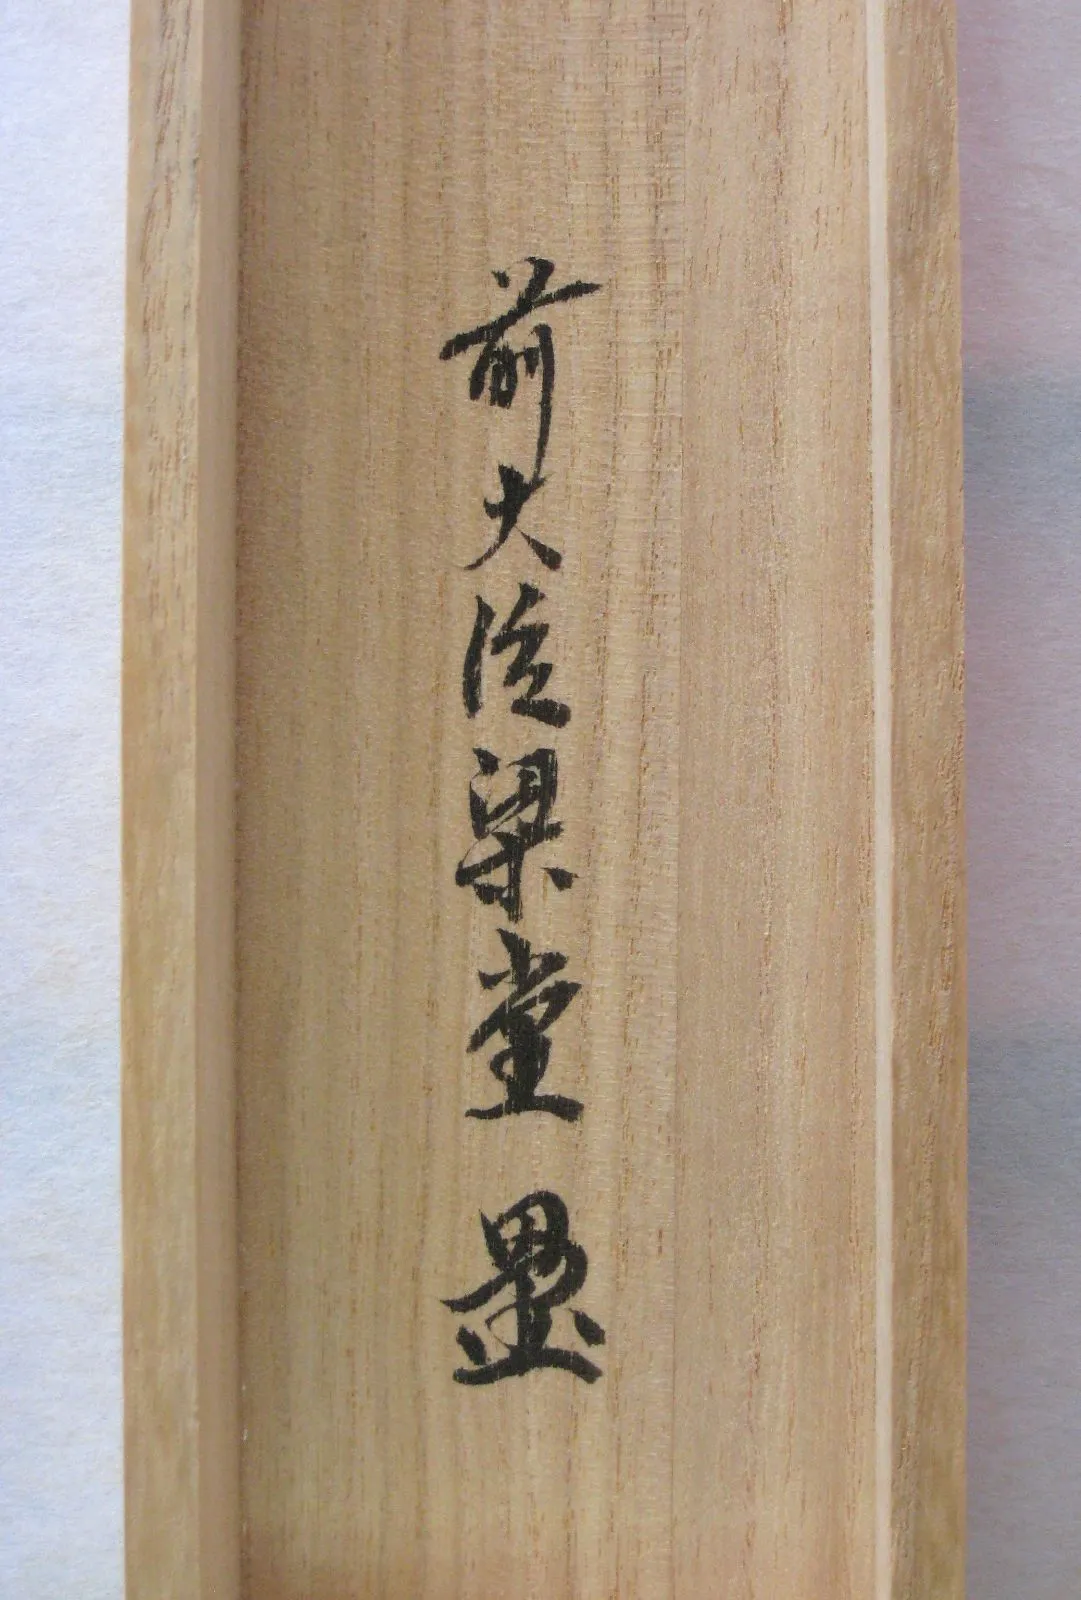 前大徳梁堂 墨